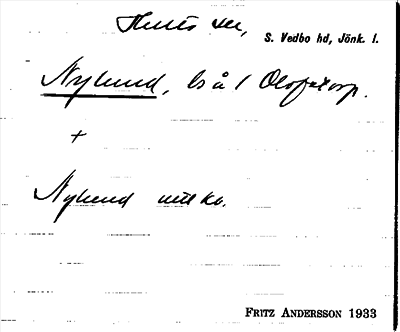 Hults sn, S. Vedbo hd, Jönk. l.
Nylund, bs å 1 Olofstorp.
+
Nylund utt ka.
FRITZ ANDERSSON 1933